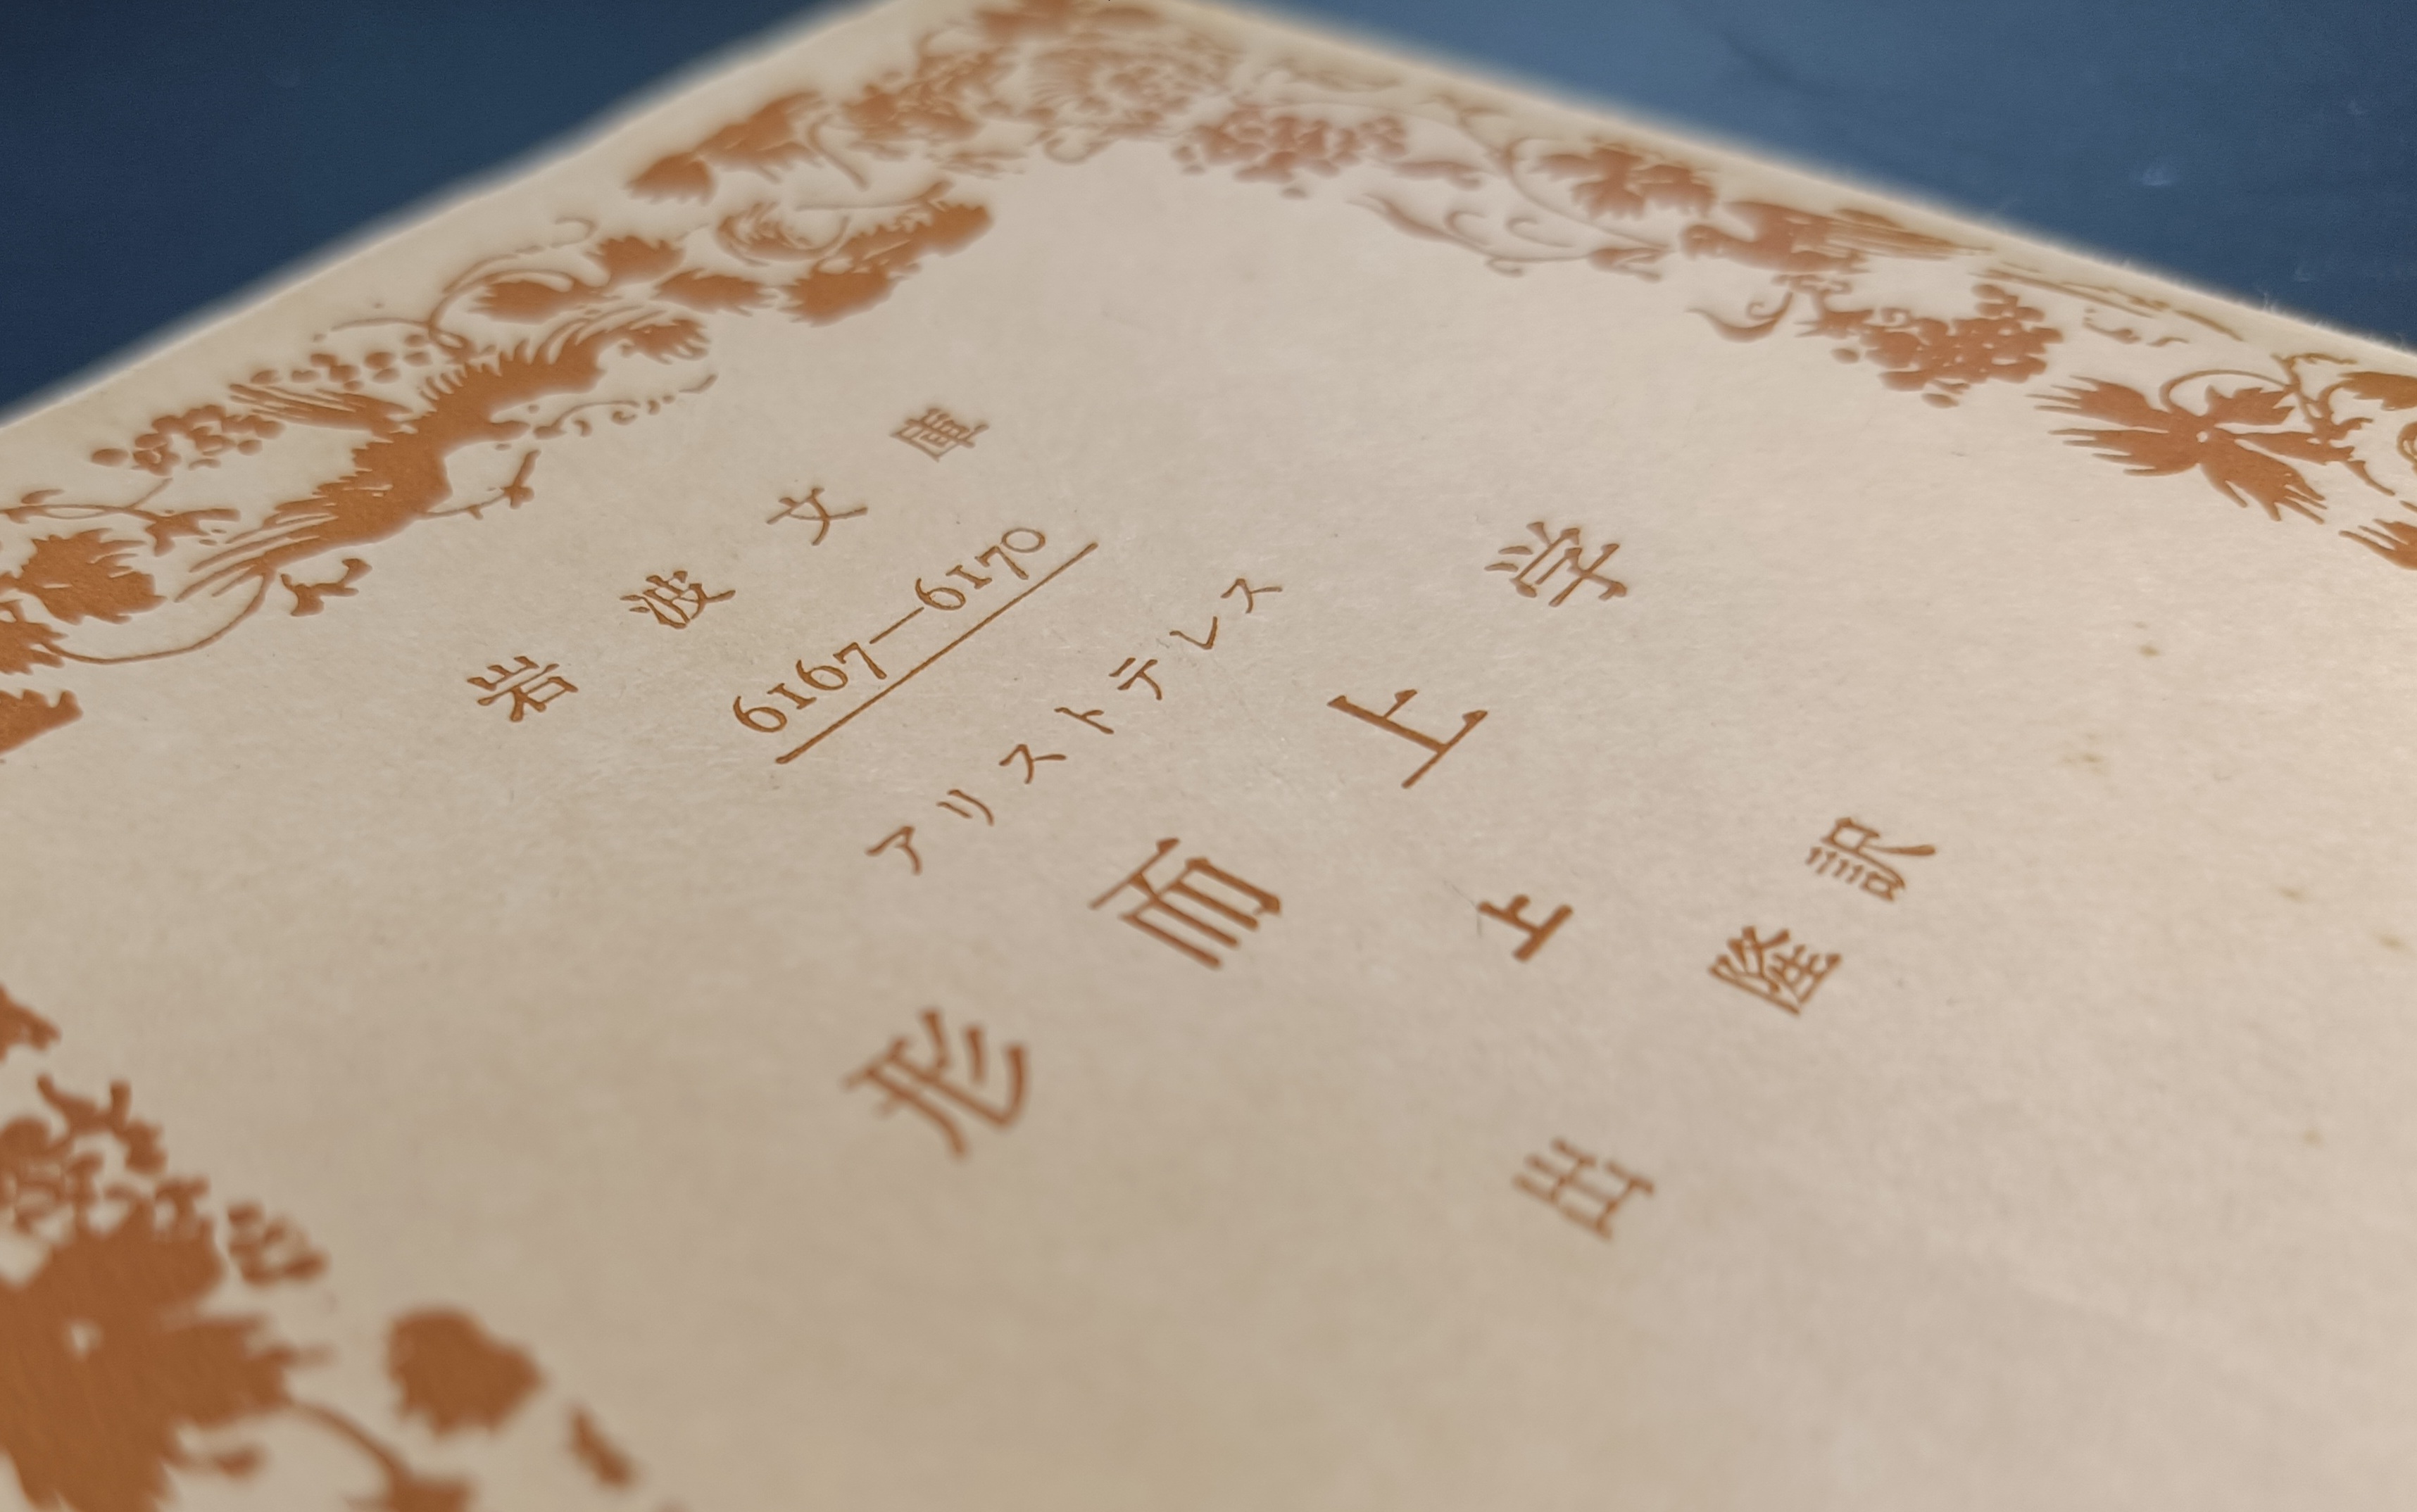 岩波文庫
6167—6170
アリストテレス
形而上学
上
出隆訳